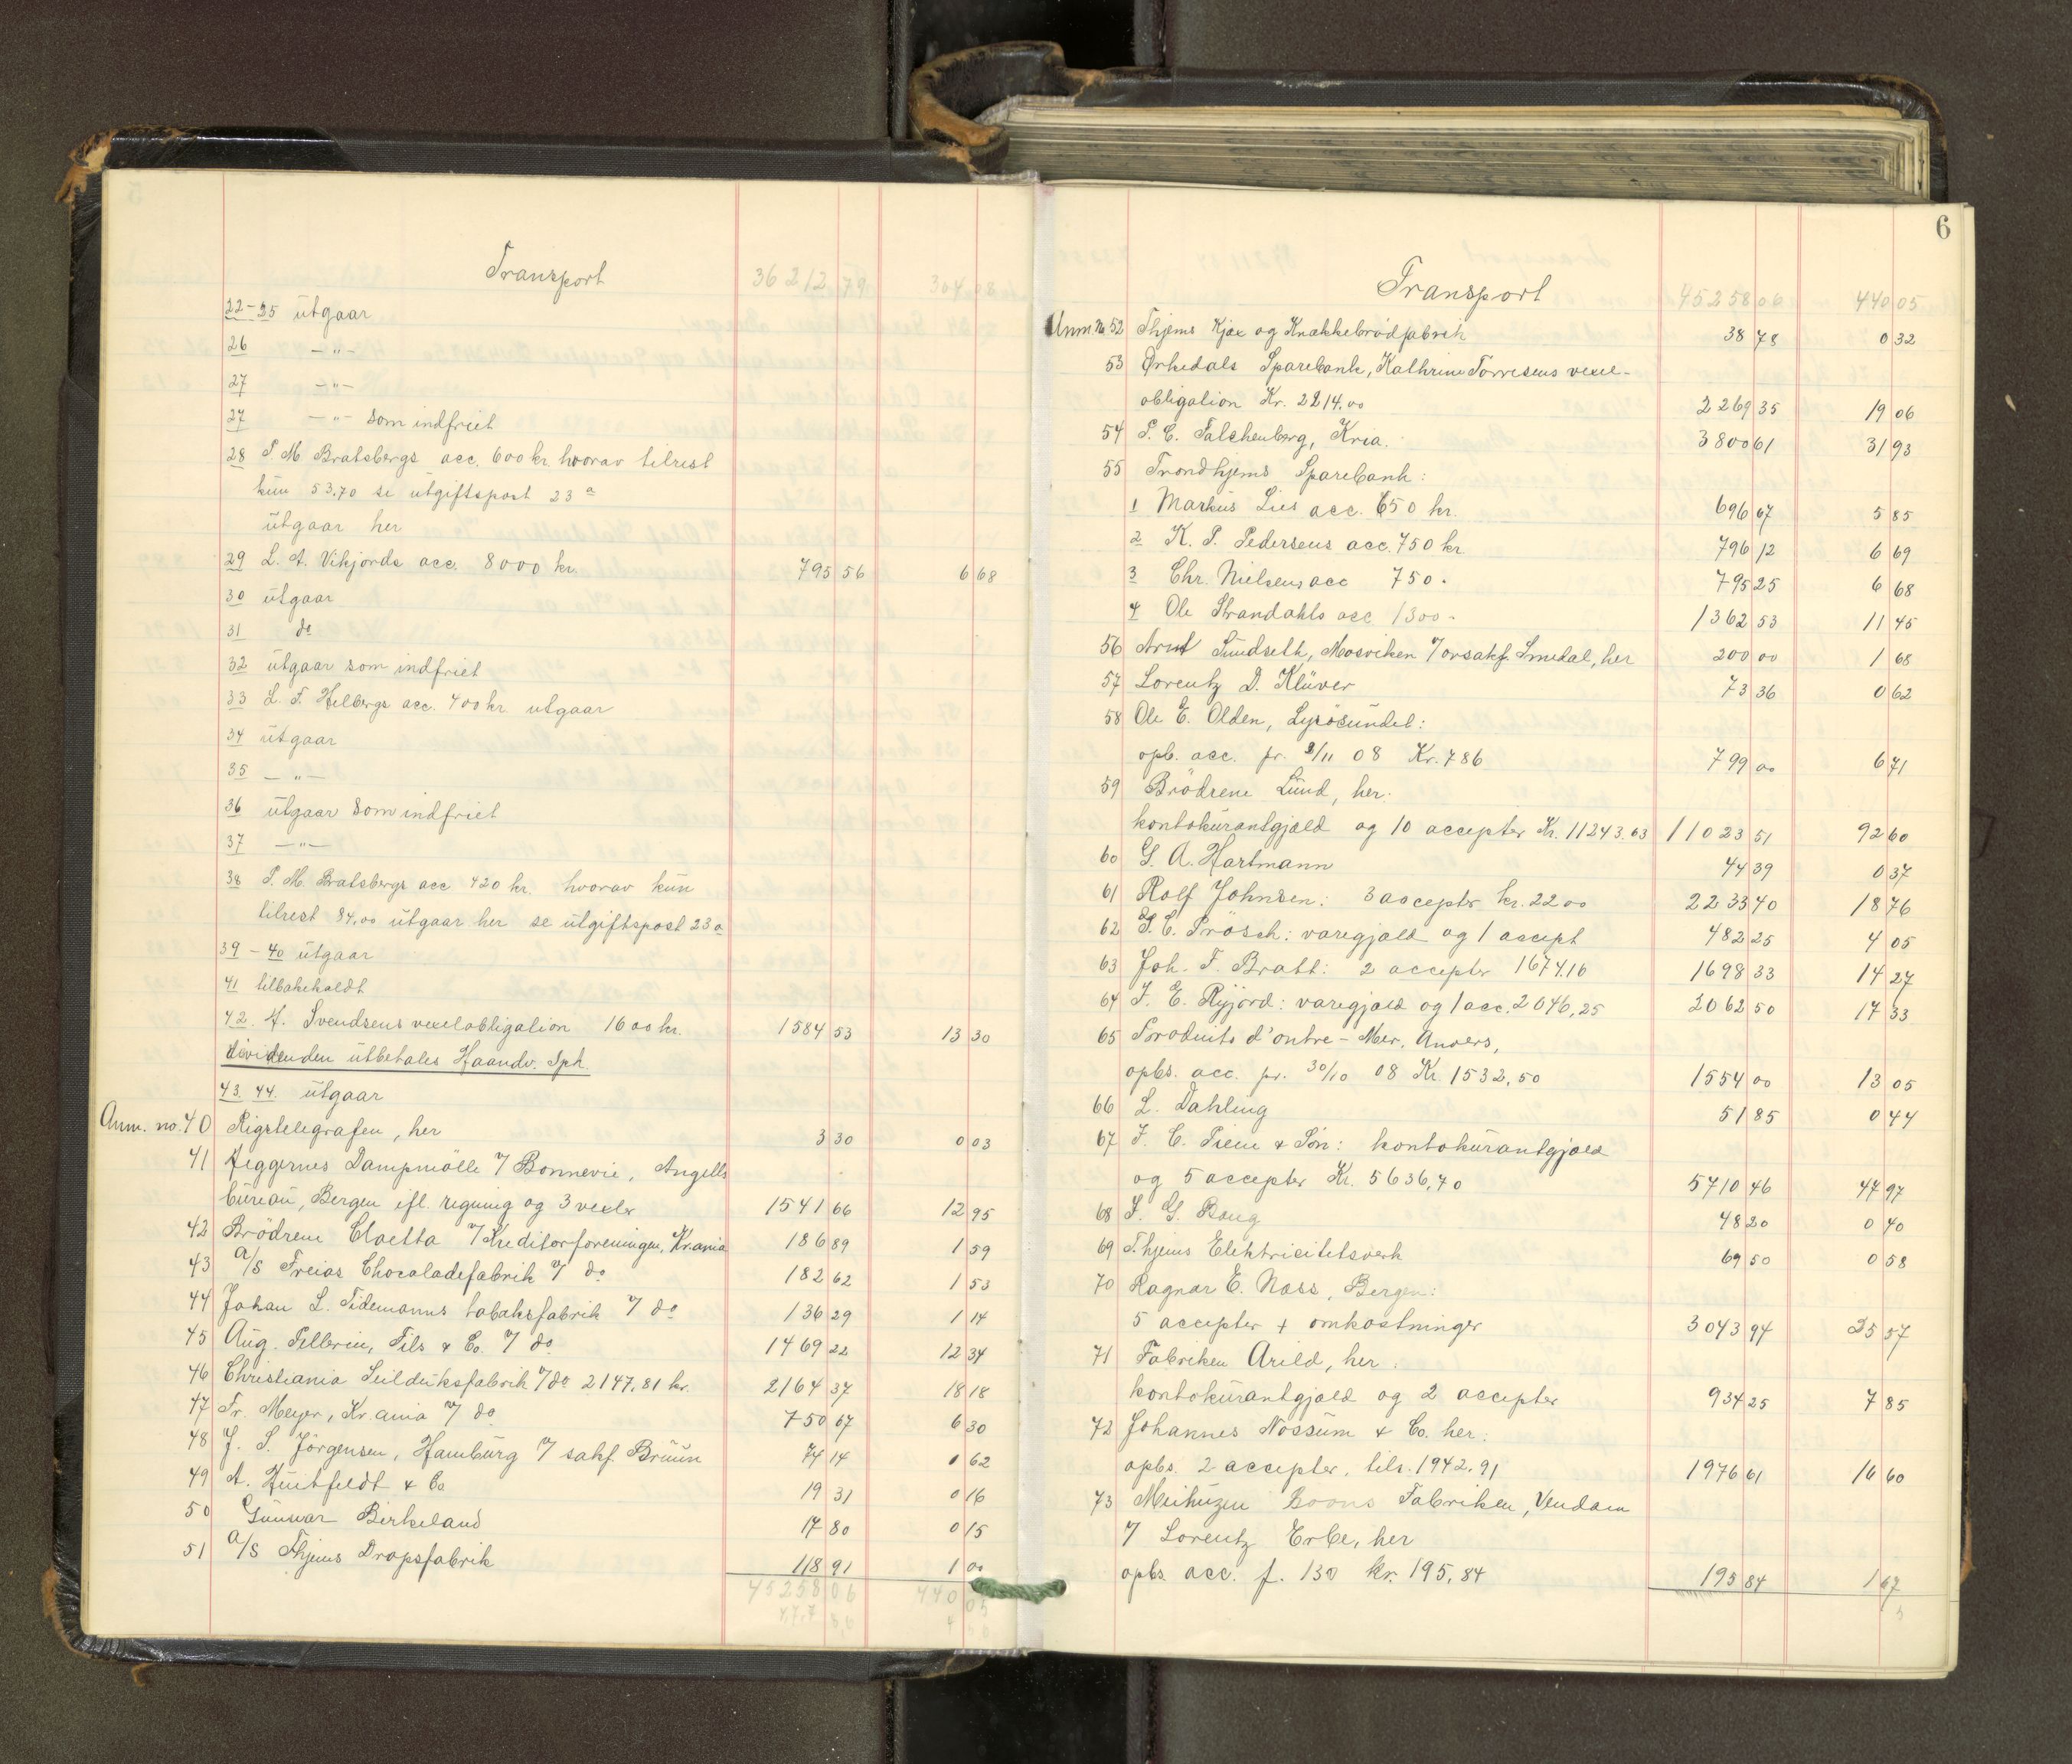 Transport 36212 79 304 08
22-25 ütgaar
26 -"-
27 -"-
27 -"- som indfriet
28 P. M. Bratsbergs acc. 600 kr. hvorav tilrest
kün 53.70 se utgiftspost 23 a
ütgaar her
29 L. A. Vikjords acc. 8000 kr. 795 56 6 68
30 ütgaar
31 do
32 ütgaar som indfriet
33 L. F. Helbergs acc. 400 kr. utgaar
34 ütgaar
35 -"-
36 ütgaar som indfriet
37 -"-
38 P. M. Bratsbergs acc 420 kr. hvorav kün
tilrest 84,00 ütgaar her se ütgiftspost 23 a
39-40 ütgaar
41 tilbakekaldt
42. A. Svendsens vexelobligation 1600 kr. 1584 53 13 30
dividenden ütbetales Haandv. Spk.
43. 44. ütgaar
Anm. no. 40 Rigstelegrafen, her 3 30 0 03
41 Aeggernes Dampmölle 7 Bonnevie, Angells
büreaü, Bergen ifl. regning og 3 vexler 1541 66 12 95
42 Brödrene Cloetta 7 Kreditorforeningen, Kr.ania 186 89 1 59
43 a/s Freias Chocoladefabrik 7 do 182 62 1 53
44 Johan L. Tidemanns tobaksfabrik 7 do 136 29 1 14
45 Aüg. Pellerin, Fils & Co. 7 do 1469 22 12 34
46 Christiania Seildüksfabrik 7 do 2147,81 kr. 2164 37 18 18
47 Fr. Meyer, Kr.ania 7 do 750 67 6 30
48 J. S. Jörgensen, Hambürg 7 sakf. Brüün 74 14 0 62
49 A. Hüitfeldt & Co 19 31 0 16
50 Günnar Birkeland 17 80 0 15
51 a/s Thjems Dropsfabrik 118 91 1 00
45258 06 440 05
6
Transport 45258 06 440 05
Anm. No 52 Thjems Kjæx og Knækkebrödfabrik 38 78 0 32
53 Orkedals Sparebank, Kathrine Torresens vexel-
obligation Kr. 2214.00 2269 35 19 06
54 P. C. Falchenberg, Kria. 3800 61 31 93
55 Trondhjems Sparebank:
1 Marküs Lies acc. 650 kr. 696 67 5 85
2 K. P. Pedersens acc. 750 kr. 796 12 6 69
3 Chr. Nielsens acc 750. 795 25 6 68
4 Ole Strandahls acc. 1300. 1362 53 11 45
56 Arnt Sündseth, Mosviken 7 orsakf. Smedal, her 200 00 1 68
57 Lorentz D. Klüver 73 36 0 62
58 Ole E. Olden, Lysösündet:
opb. acc. pr. 3/11 08 Kr. 786 799 00 6 71
59 Brödrene Lünd, her.
kontokürantgjæld og 10 accepter Kr. 11243.63 11023 51 92 60
60 G. A. Hartmann 44 39 0 37
61 Rolf Johnsen: 3 accepter kr. 2200 2233 40 18 76
62 P. C. Prösch: varegjæld og 1 accept 482 25 4 05
63 Joh. F. Bratt: 2 accepter 1674.16 1698 33 14 27
64 J. E. Ryjord: varegjæld og 1 acc. 2046,25 2062 50 17 33
65 Produits d'outre-Mer, Anvers,
opbs. acc. pr. 30/10 08 Kr. 1532,50 1554 00 13 05
66 L. Dahling 51 85 0 44
67 J. C. Piene & Sön: kontokürantgjæld
og 5 accepter Kr. 5636,70 5710 46 47 97
68 J. G. Boug 48 20 0 40
69 T.hjems Elektricitetsverk 69 50 0 58
70 Ragnar E. Næss, Bergen:
5 accepter + omkostninger 3043 94 25 57
71 Fabriken Arild, her.
kontokürantgjæld og 2 accepter 934 25 7 85
72 Johannes Nossüm & Co. her:
opbs. 2 accepter. tils. 1942.91 1976 61 16 60
73 Meihüzen Boons Fabriken, Vendam
7 Lorentz Erbe, her
opbs. acc. f. 130 kr. 195,84 195 84 1 67